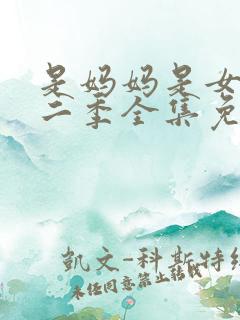 是妈妈是女
二季全集免
凯文-科斯特纳
未经同意禁止转载